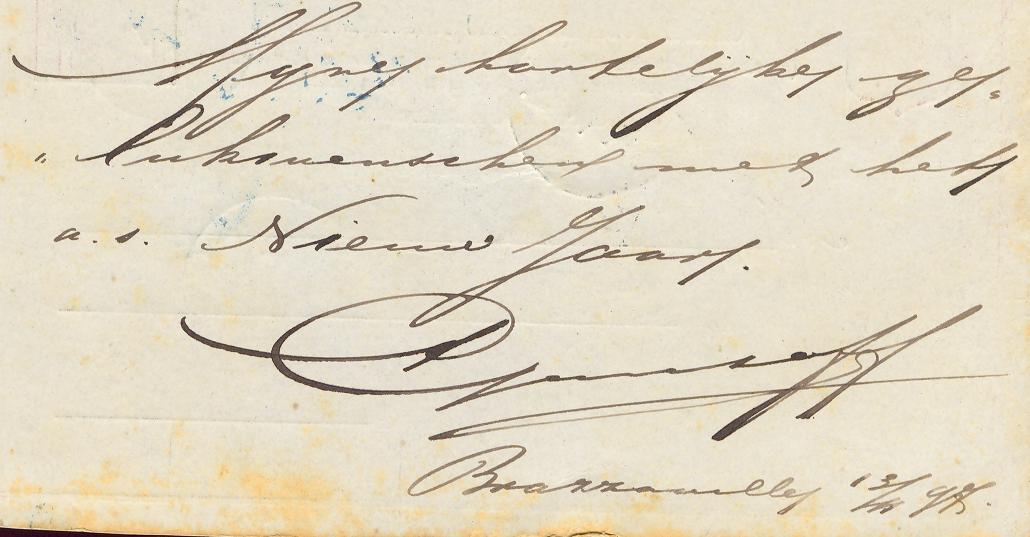 Myne hartelyke ge=
"lukwenschen met het
a. s. Nieuw Jaar.
Brazzaville 13/11 97.